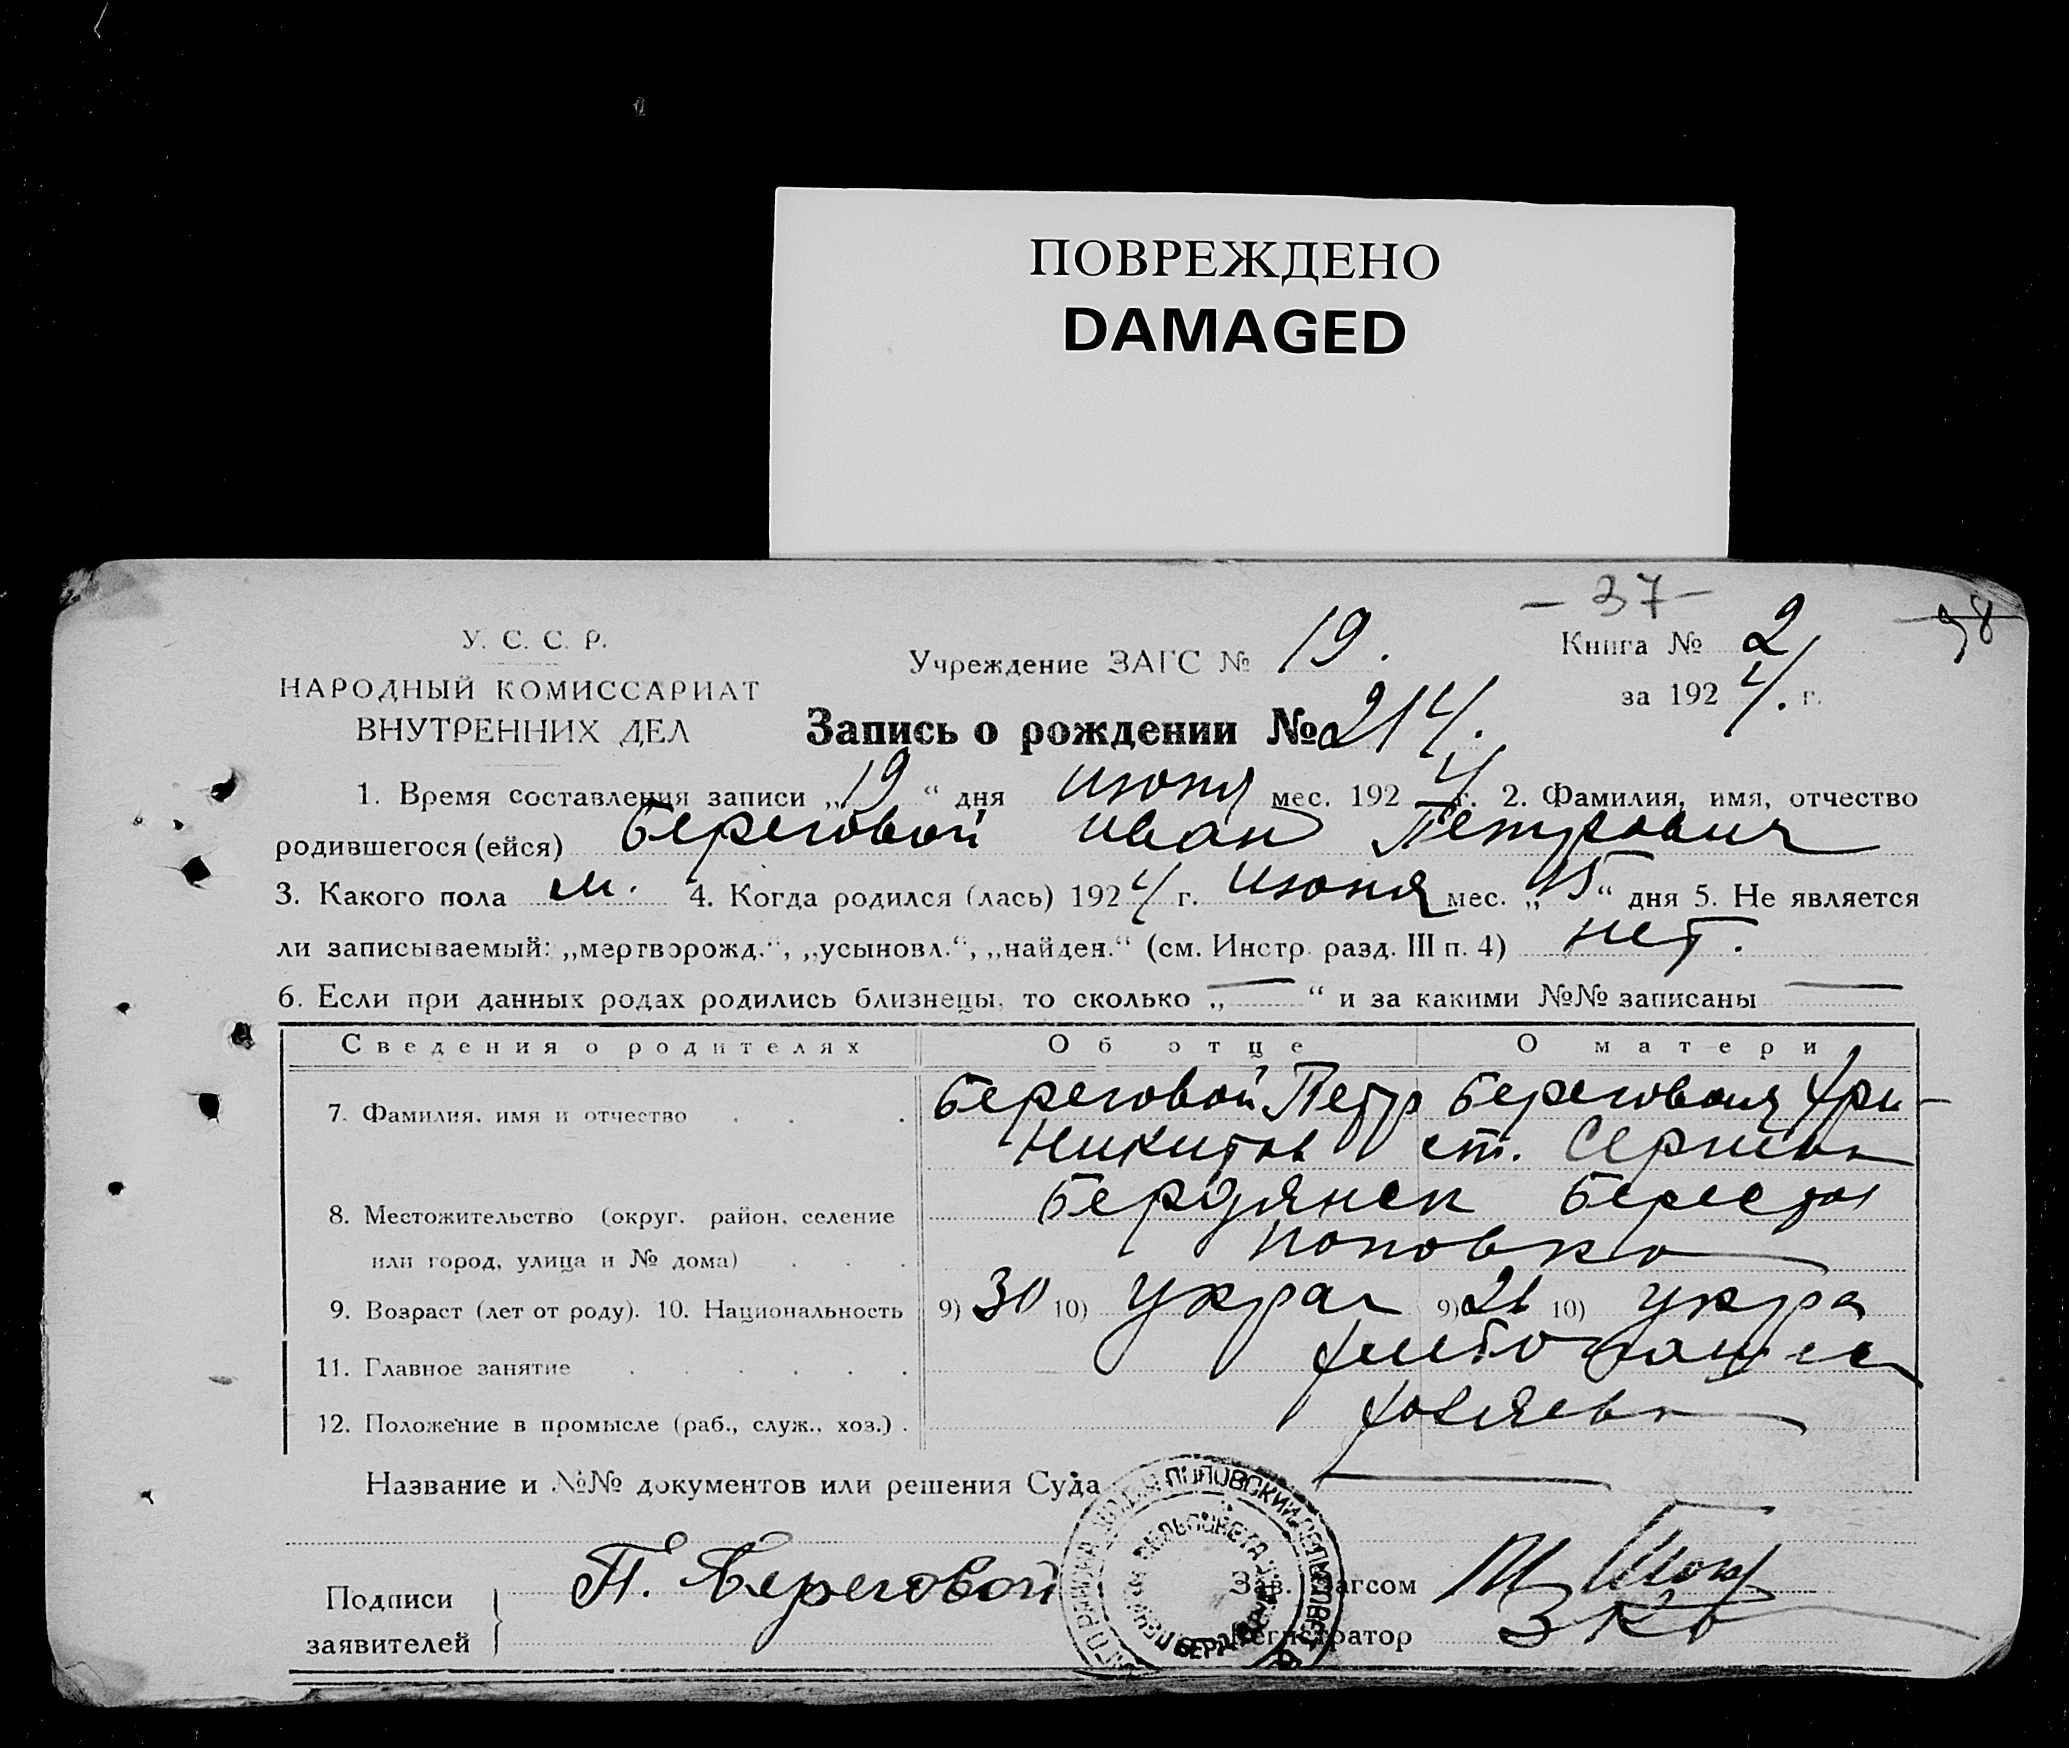 ПОВРЕЖДЕНО
DAMAGED
– 37 –
98
У. С. С. Р.
НАРОДНЫЙ КОМИССАРИАТ
ВНУТРЕННИХ ДЕЛ
Учреждение ЗАГС № 19.
Книга № 2
за 1924. г.
Запись о рождении № 214.
1. Время составления записи „19“ дня июня мес. 1924 г. 2. Фамилия, имя, отчество
родившегося (ейся) Береговой Иван Петрович
3. Какого пола м. 4. Когда родился (лась) 1924 г. июня мес. „15“ дня 5. Не является
ли записываемый: „мертворожд.“, „усыновл.“, „найден.“ (см. Инстр. разд. III п. 4) нет.
6. Если при данных родах родились близнецы, то сколько „—“ и за какими №№ записаны —
Сведения о родителях Об отце О матери
7. Фамилия, имя и отчество Береговой Петр Береговая Хри–
Никитов ст. Сергиевн
8. Местожительство (округ, район, селение Бердянск Берестов
или город, улица и № дома) Поповка
9. Возраст (лет от роду). 10. Национальность 9) 30 10) укра 9) 26 10) укра
11. Главное занятие хлебопашес
12. Положение в промысле (раб., служ., хоз.) хозяева
Название и №№ документов или решения Суда —
Подписи заявителей П. Береговой
Зав. Загсом
Регистратор